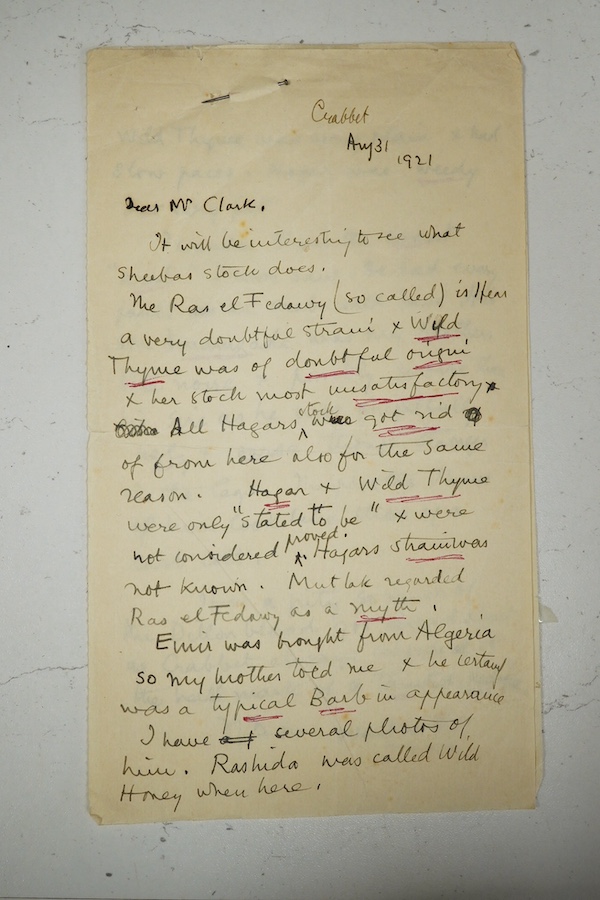 Crabbet
Aug 31
1921
Dear Mr Clark,
It will be interesting to see what
Sheebas stock does.
The Ras el Fedawy (so called) is I fear
a very doubtful strain & Wild
Thyme was of doubtful origin
& her stock most unsatisfactory.
All Hagars stock was got rid
of from here also for the same
reason. Hagar & Wild Thyme
were only "stated to be" & were
not considered proved. Hagars strain was
not known. Mutlak regarded
Ras el Fedawy as a myth.
Emir was brought from Algeria
so my mother told me & he certainly
was a typical Barb in appearance
I have several photos of
him. Rashida was called Wild
Honey when here.